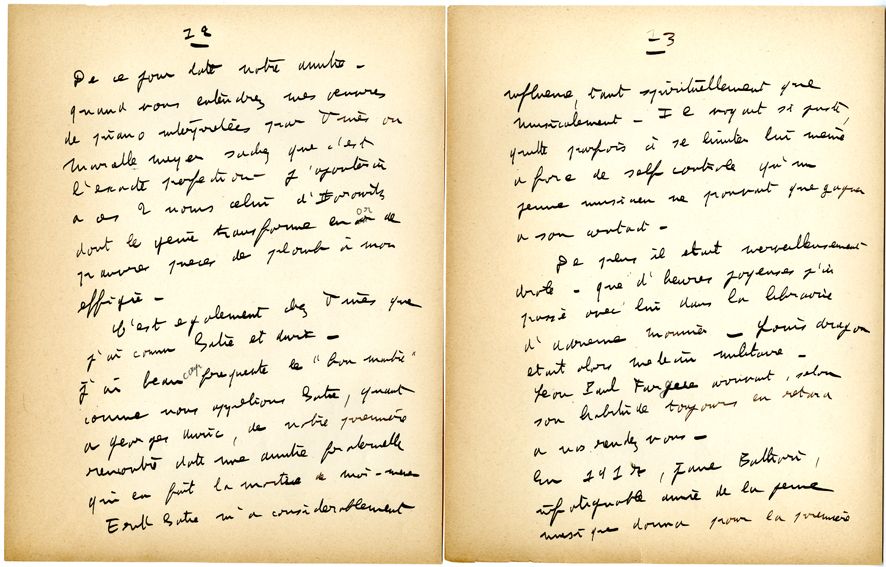 12
De ce jour date notre amitié -
quand vous entendrez mes œuvres
de piano interprétées par Viñès ou
Marcelle Meyer sachez que c'est
l'exacte perfection - j'ajouterai
à ces 2 noms celui d'Horowitz
dont le génie transforme en or de
pauvres pièces de plomb à mon
effigie -
C'est également chez Viñès que
j'ai connu Satie et Auric -
J'ai beaucoup fréquenté le "bon maître"
comme nous appelions Satie, quant
à Georges Auric, de notre première
rencontre date une amitié fraternelle
qui en fait la moitié de moi-même
Erik Satie m'a considérablement
13
influencé, tant spirituellement que
musicalement - Il voyait si juste,
quitte parfois à se limiter lui même
à force de self contrôle qu'un
jeune musicien ne pouvait que gagner
à son contact -
De plus il était merveilleusement
drôle - que d'heures joyeuses j'ai
passé avec lui dans la librairie
d'Adrienne Monnier - Louis Aragon
était alors médecin militaire -
Léon Paul Fargue arrivait, selon
son habitude toujours en retard
à nos rendez vous -
En 1917, Jane Bathori,
infatigable amie de la jeune
musique donna pour la première